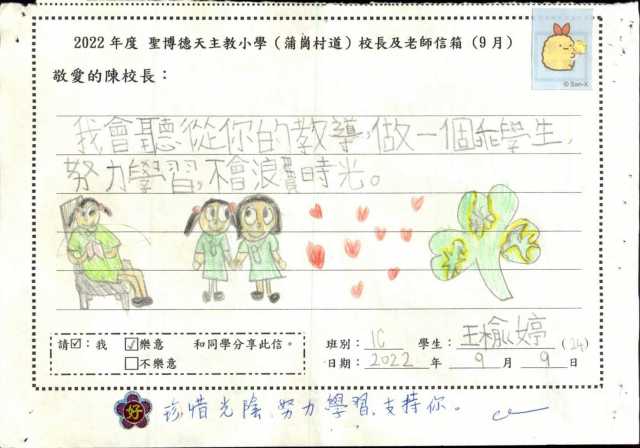 2022 年度 聖博德天主教小學（蒲崗村道）校長及老師信箱（9 月）
© San-X
敬愛的陳校長：
我會聽從你的教導,做一個乖學生,
努力學習,不會浪費時光。
請☑：我 ☑樂意 和同學分享此信。
□不樂意
班別： 1C 學生： 王榆婷 (24)
日期： 2022 年 9 月 9 日
好 珍惜光陰,努力學習,支持你。